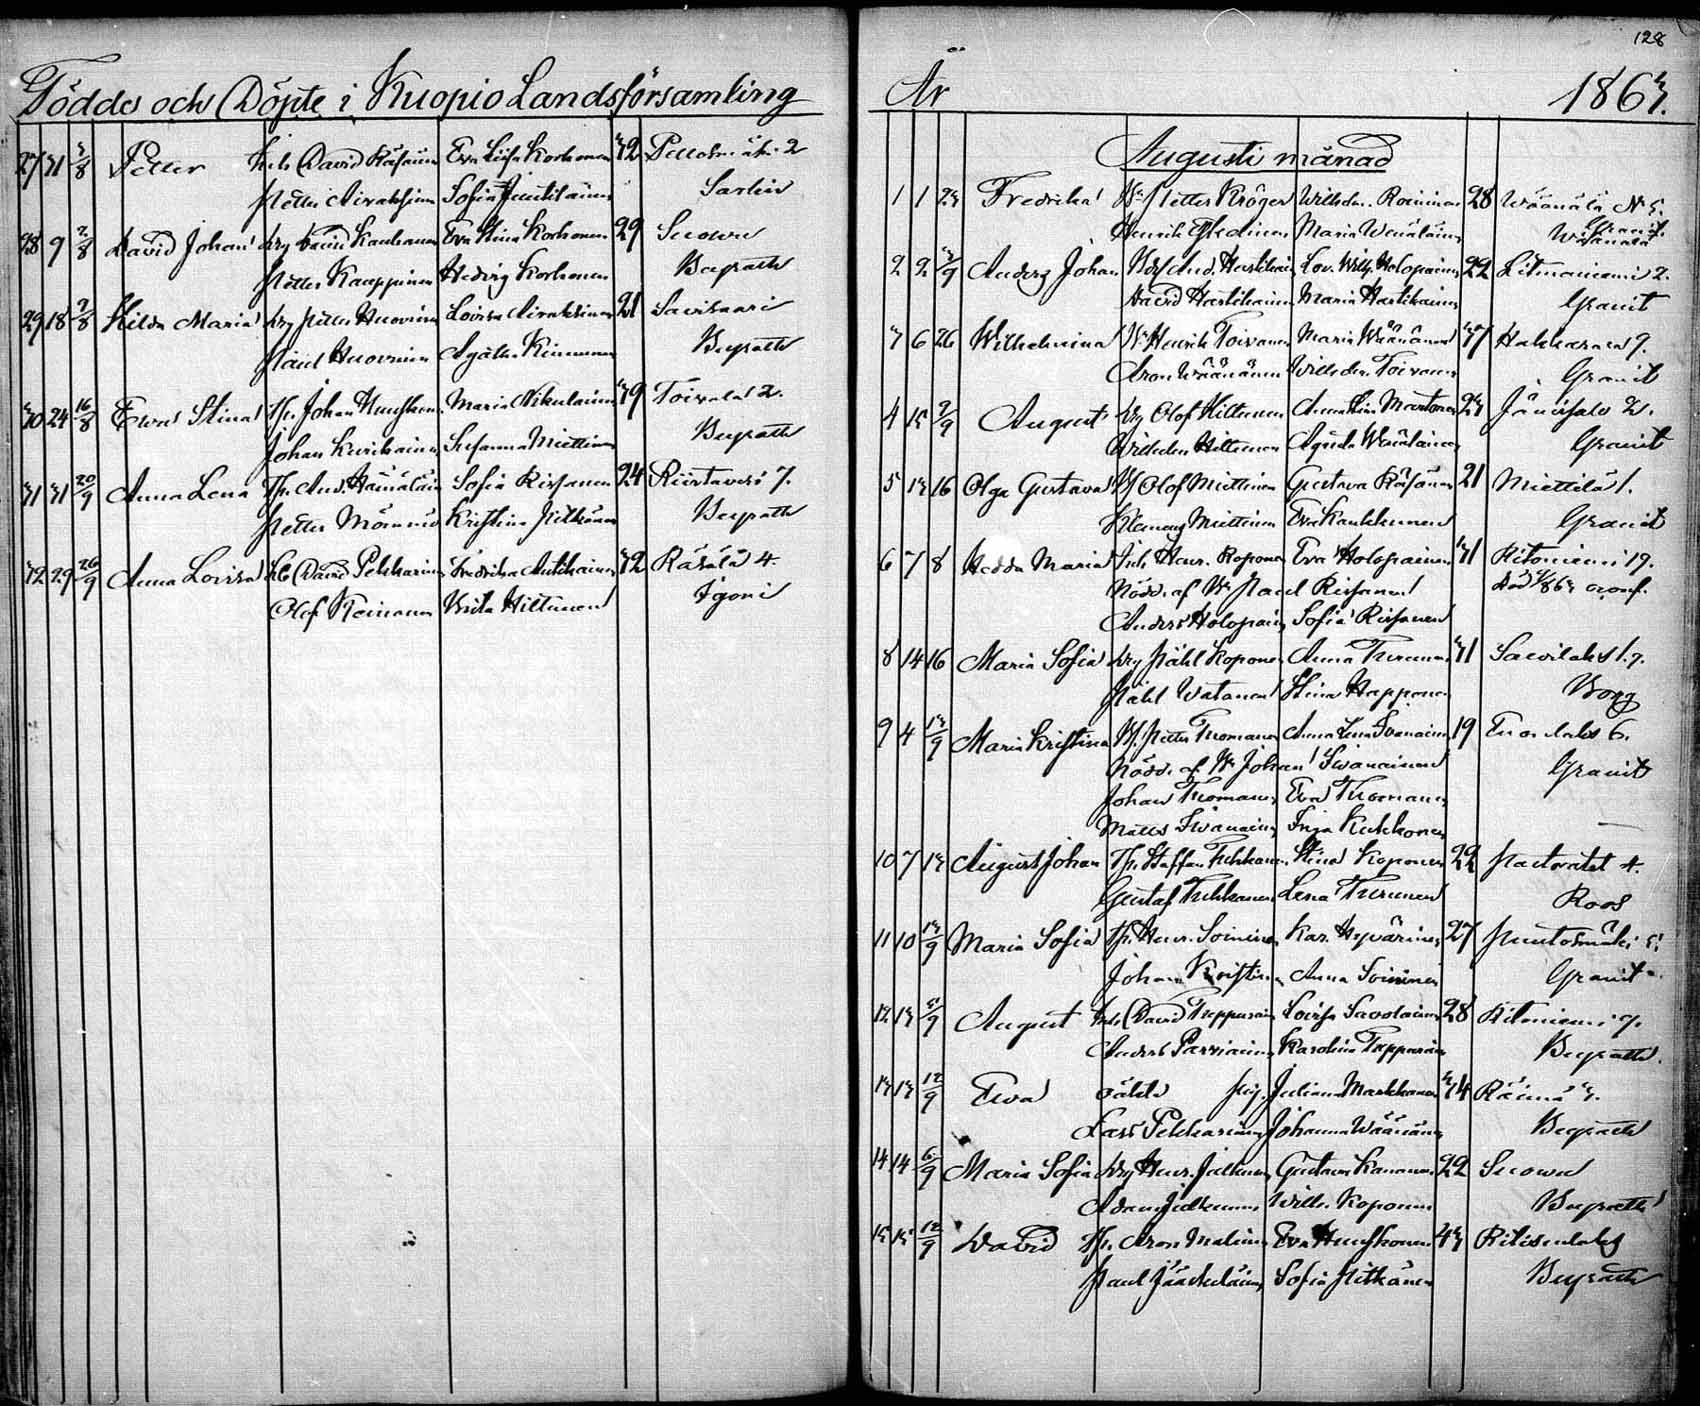 Födde och Döpte i Kuopio Landsförsamling
27 31 3/8 Petter Inh. David Räsänen Eva Lisa Korhonen 32 Pellosmäki 2
Petter Airaksinen Sofia
28 9 2/8 David Johan Drg David Kauhanen Eva Stina Korhonen 29 Suown
Petter Kaappinen Hedvig Korhonen Beyrath
29 18 2/8 Hilda Maria Drg Petter Huovinen Lovisa Airaksinen 21 Savisaari
Påhl Huovinen Agata Kinnunen Beyrath
30 24 16/8 Ewa Stina Th. Johan Huuskonen Maria Nikulainen 39 Toivala 2.
Johan Susanna Miettinen Beyrath
31 31 20/9 Anna Lena Th. And. Hämäläin Sofia Rissanen 24 Riistavesi 7.
Petter Kristina Pitkänen Beyrath
32 29 26/9 Anna Lovisa David Pekkarinen Fredrika Antikainen 32 Räsälä 4.
Olof Reinanen Brita Hiltunen Igoni
128
År 1863.
Augusti månad
1 1 23 Fredrika Petter Kröger Wilhelm. Roininen 28 Wäänälä N 5.
Henrik Maria Wenäläinen Wäänälä Granit
2 2 3/9 Anders Johan And. Hartikain Lov. Wilh. Holopainen 22 Litmaniemi 2.
David Hartikainen Maria Hartikainen Granit
3 6 26 Wilhelmina Henrik Toivanen Maria Wäänänen 37 Hakkarala 9.
Aron Wäänänen Wilhelm. Toivanen Granit
4 15 2/9 August Drg Olof Hiltunen Anna Lisa Martonen 23 Jänissalo 2.
Wilhelm Hiltunen Agneta Wenäläinen Granit
5 13 16 Olga Gustava Olof Miettinen Gustava Räsänen 21 Miettilä 1.
Klemens Miettinen Eva Kaukkunen Granit
6 7 8 Hedda Maria Inh. Henr. Koponen Eva Holopainen 31 Ritoniemi 19.
Nödd. af Paul Rissanen
Anders Holopain Sofia Rissanen
8 14 16 Maria Sofia Drg Påhl Koponen Anna Turunen 31 Savilaks 17.
Påhl Watanen Stina Happonen Borg
9 4 13/9 Maria Kristina Petter Tuomanen Anna Lena Iwanainen 19 6.
Nödd. af Johan Iwanainen Granit
Johan Tuomanen Eva Tuomanen
Matts Iwanainen Inga Kukkonen
10 7 13 August Johan Th. Staffan Tuhkanen Stina Koponen 22 Pastoratet 4.
Gustaf Tuhkanen Lena Turunen Roos
11 10 13/9 Maria Sofia Th. Henr. Soininen Kar. Hyvärinen 27 Puutosmäki 5.
Johan Anna Soininen Granit
12 13 5/9 August Inh. David Tuppurain Lovisa Savolainen 28 Ritoniemi 9.
Anders Parviainen Karolina Tuppurain Beyrath
13 13 12/9 Ewa oäkta pig. Juliana Markkanen 34 Räimä 3.
Lars Pekkarinen Johanna Wäänänen Beyrath
14 14 6/9 Maria Sofia Drg Henr. Julkunen Gustava Kananen 22 Suown
Adam Julkunen Wilh. Koponen Beyrath
15 15 12/9 David Th. Aron Malinen Eva Huuskonen 43 Ritisenlaks
Paul Jääskeläinen Sofia Pitkänen Beyrath